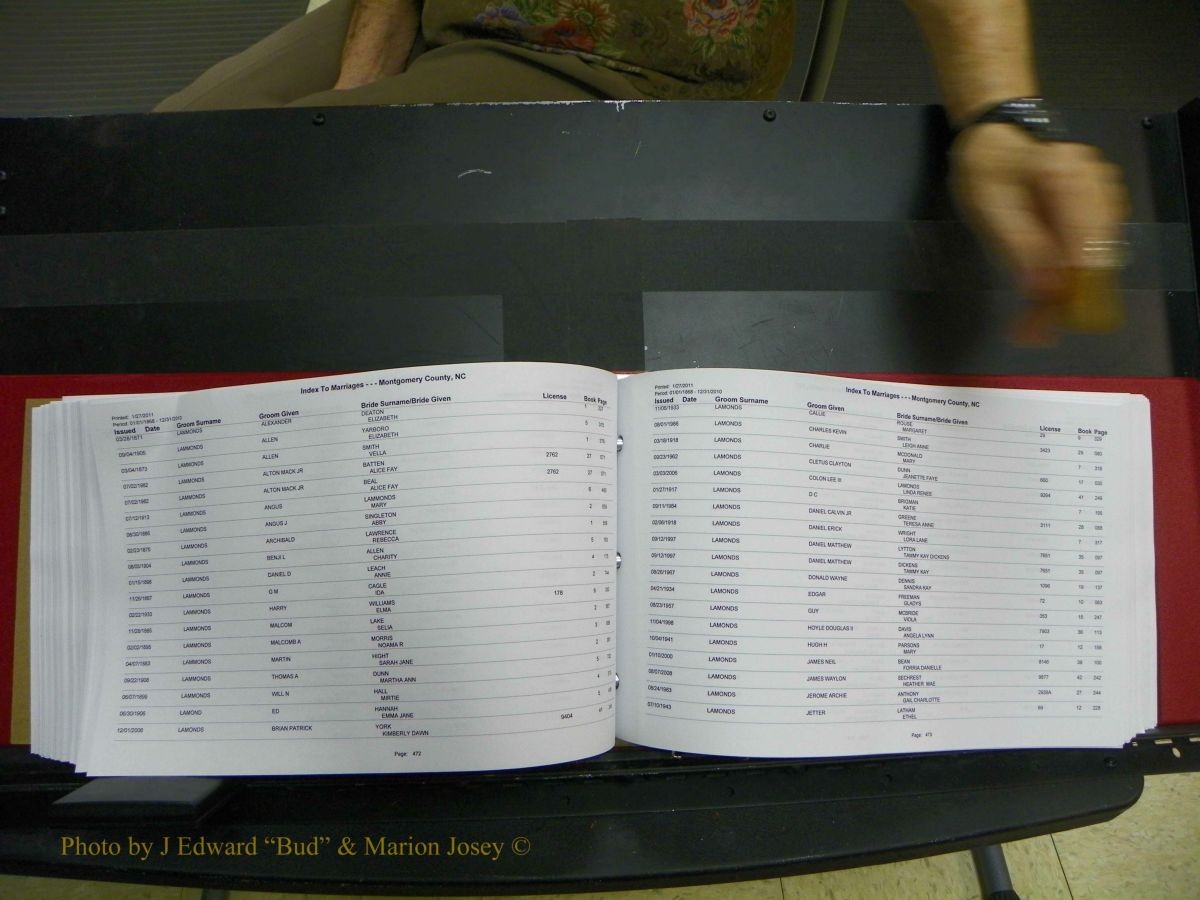 Index To Marriages - - - Montgomery County, NC
Printed: 1/27/2011
Period: 01/01/1868 - 12/31/2010
Issued Date Groom Surname Groom Given Bride Surname/Bride Given License Book Page
03/28/1871 LAMMONDS ALEXANDER DEATON 1
ELIZABETH
09/04/1905 LAMMONDS ALLEN YARBORO 5
ELIZABETH
03/04/1873 LAMMONDS ALLEN SMITH 1
VELLA
07/02/1982 LAMMONDS ALTON MACK JR BATTEN 2762 27
ALICE FAY
07/02/1982 LAMMONDS ALTON MACK JR BEAL 2762 27
ALICE FAY
07/12/1913 LAMMONDS ANGUS LAMMONDS 6
MARY
LAMMONDS ANGUS J SINGLETON 2
ABBY
02/23/1875 LAMMONDS ARCHIBALD LAWRENCE 1
REBECCA
LAMMONDS BENJ L ALLEN 5
CHARITY
01/15/1898 LAMMONDS DANIEL D LEACH 4
ANNIE
LAMMONDS G M CAGLE 2
IDA
02/22/1933 LAMMONDS HARRY WILLIAMS 178 9
ELMA
11/28/1885 LAMMONDS MALCOM LAKE
SELIA
02/02/1895 LAMMONDS MALCOMB A MORRIS
NOAMA R
04/07/1883 LAMMONDS MARTIN HIGHT 2
SARAH JANE
09/22/1908 LAMMONDS THOMAS A DUNN 5
MARTHA ANN
06/07/1899 LAMMONDS WILL N HALL 4
MIRTIE
06/30/1906 LAMOND ED HANNAH 5
EMMA JANE
12/01/2006 LAMONDS BRIAN PATRICK YORK 9404
KIMBERLY DAWN
Page: 472
Index To Marriages - - - Montgomery County, NC
Printed: 1/27/2011
Period: 01/01/1868 - 12/31/2010
Issued Date Groom Surname Groom Given Bride Surname/Bride Given License Book Page
11/05/1933 LAMONDS CALLIE ROUSE 29 9 329
MARGARET
08/01/1986 LAMONDS CHARLES KEVIN SMITH 3423 29 080
LEIGH ANNE
03/18/1918 LAMONDS CHARLIE MCDONALD 7 318
MARY
09/23/1962 LAMONDS CLETUS CLAYTON DUNN 17
JEANETTE FAYE
03/03/2006 LAMONDS COLON LEE III LAMONDS 9294 41 249
LINDA RENEE
01/27/1917 LAMONDS D C BRIGMAN 7
KATIE
09/11/1984 LAMONDS DANIEL CALVIN JR GREENE 3111 28 088
TERESA ANNE
02/06/1918 LAMONDS DANIEL ERICK WRIGHT 7 317
LORA LANE
09/12/1997 LAMONDS DANIEL MATTHEW LYTTON 7651 35 097
TAMMY KAY DICKENS
09/12/1997 LAMONDS DANIEL MATTHEW DICKENS 7651 35 097
TAMMY KAY
08/26/1967 LAMONDS DONALD WAYNE DENNIS 1096 19 137
SANDRA KAY
04/21/1934 LAMONDS EDGAR FREEMAN 72 10 063
GLADYS
08/23/1957 LAMONDS GUY MCBRIDE 353 16 247
VIOLA
11/04/1998 LAMONDS HOYLE DOUGLAS II DAVIS 7903 36 113
ANGELA LYNN
10/04/1941 LAMONDS HUGH H PARSONS 17 12
MARY
01/10/2000 LAMONDS JAMES NEIL BEAN 8146 38 100
FORRIA DANIELLE
08/07/2008 LAMONDS JAMES WAYLON SECHREST 9877 42 242
HEATHER MAE
08/24/1983 LAMONDS JEROME ARCHIE ANTHONY 2939A 27 244
GAIL CHARLOTTE
07/10/1943 LAMONDS JETTER LATHAM 69 12 228
ETHEL
Page: 473
Photo by J Edward “Bud” & Marion Josey ©